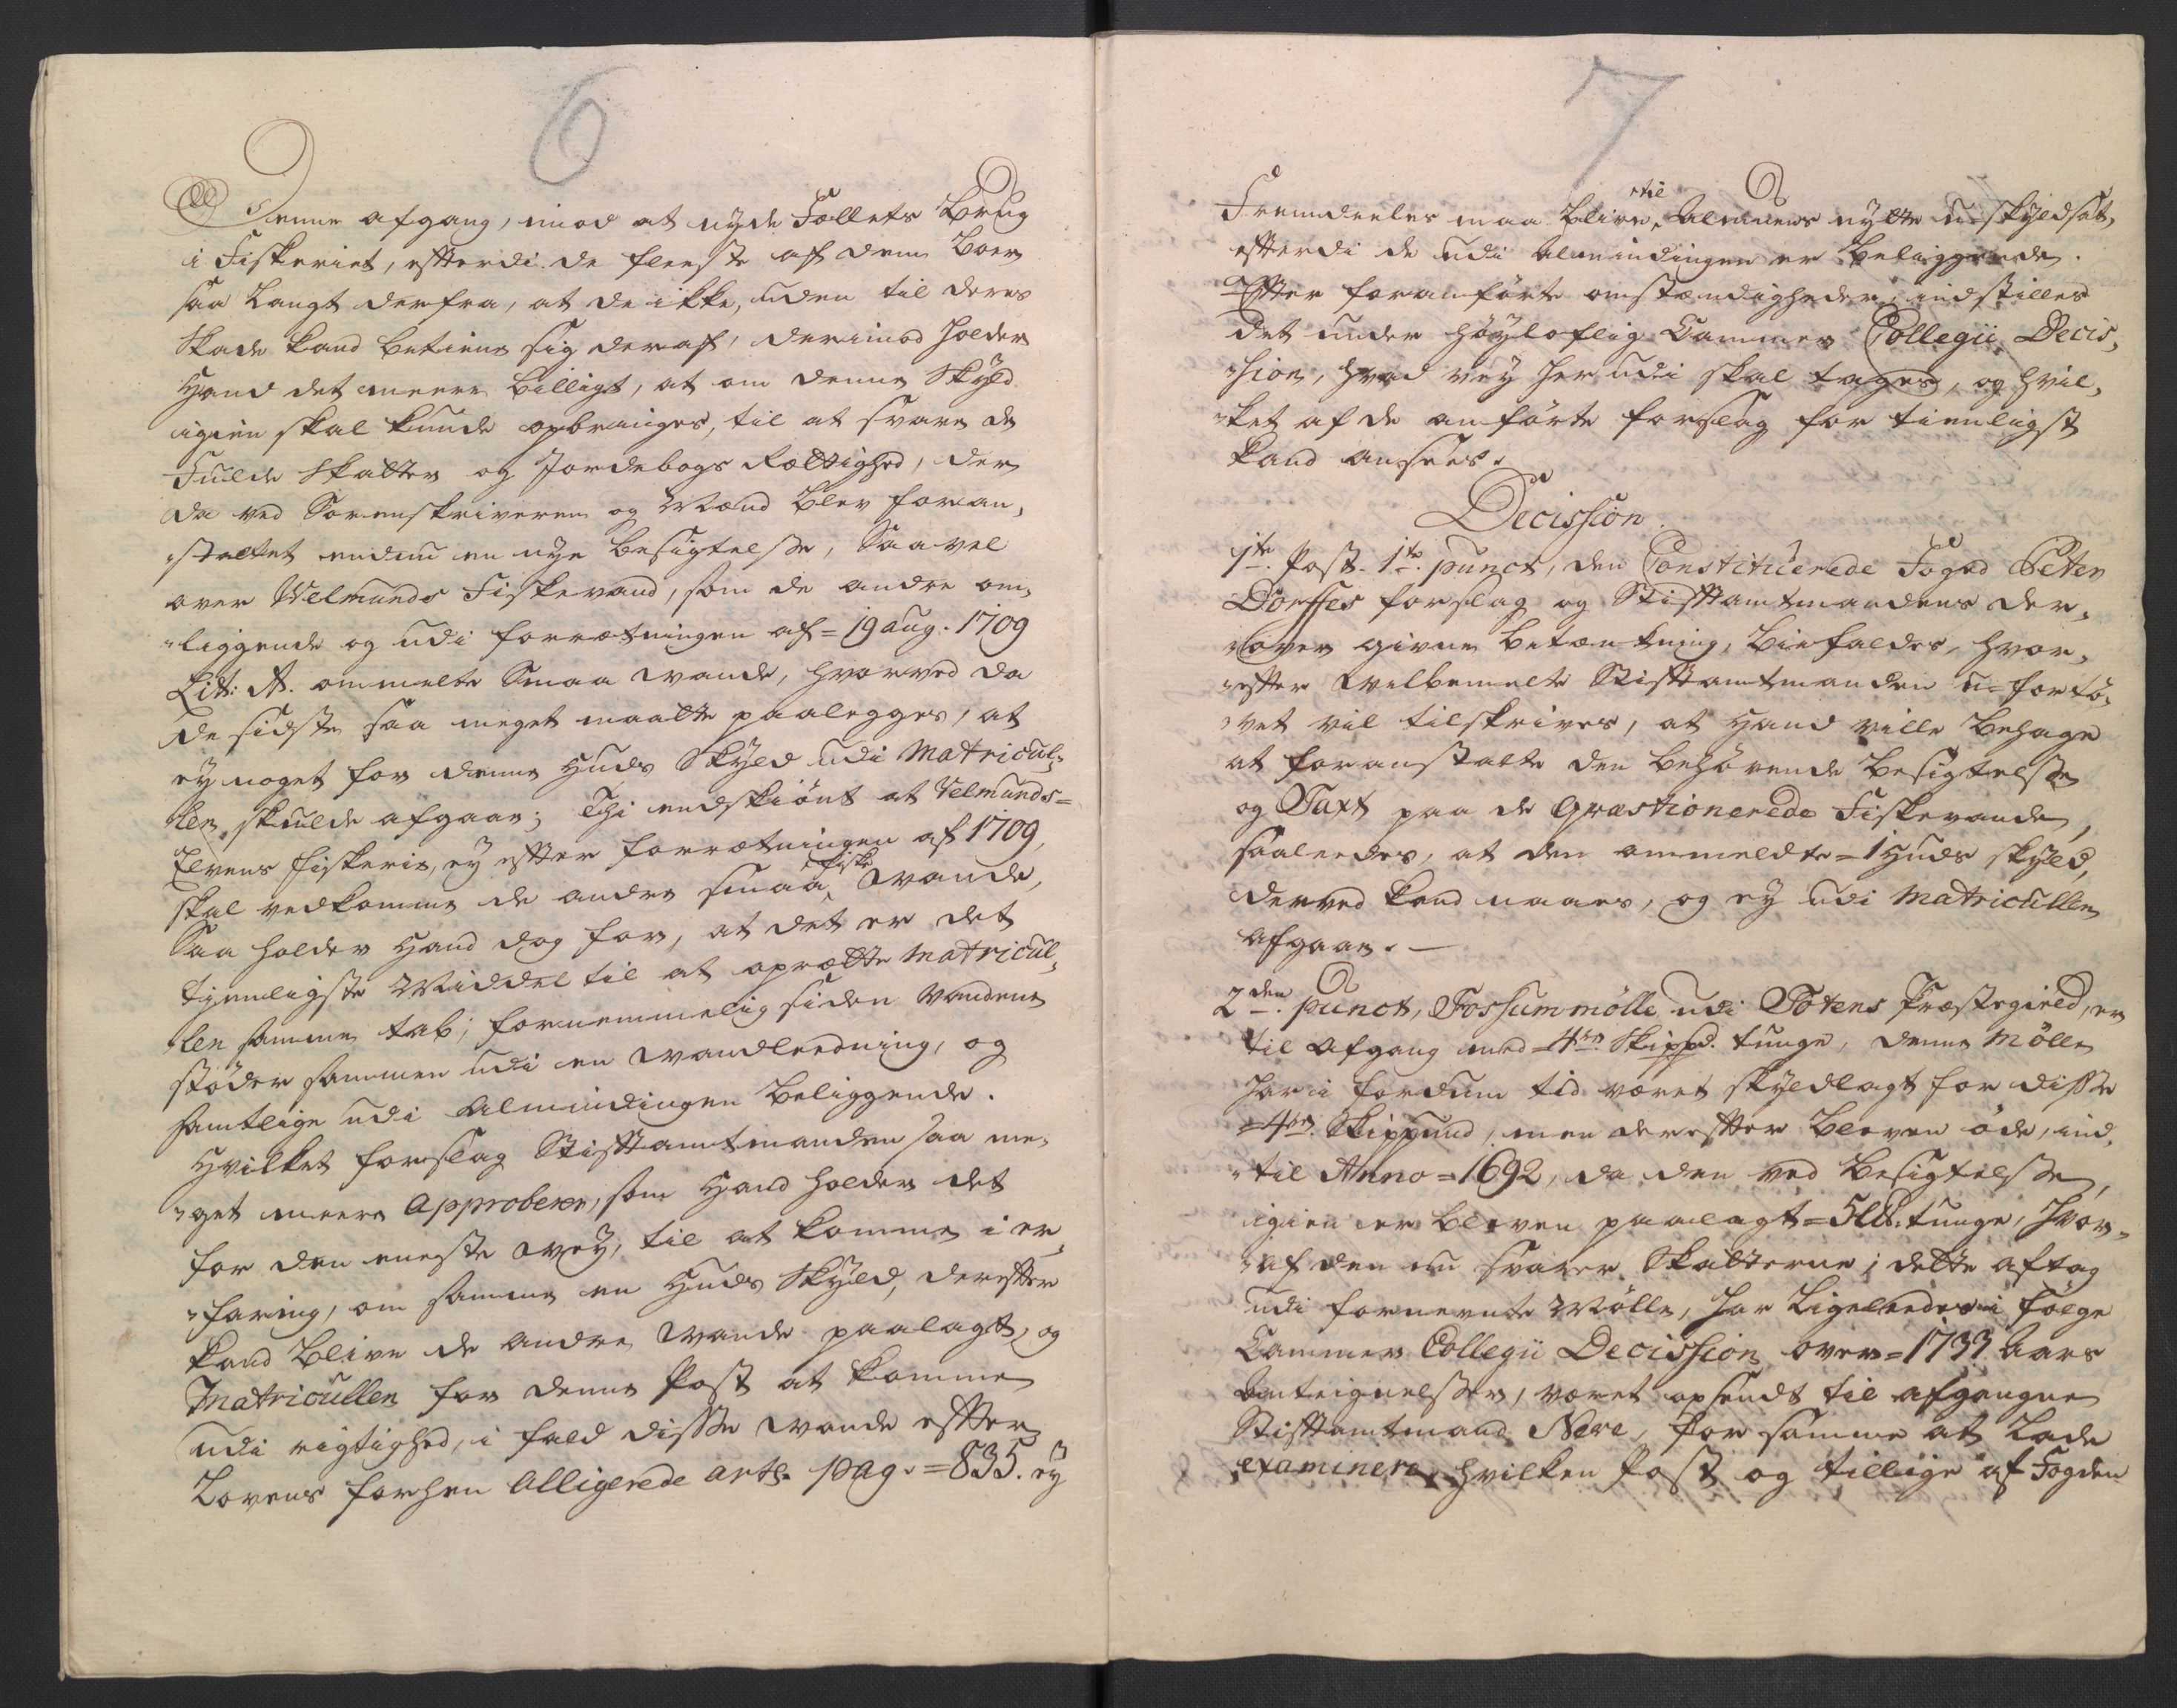 6
Denne afgang, imod at nyde Fællets Brug
i Fiskeriet, efterdi de fleeste af dem boer
saa langt derfra, at de ikke, uden til deres
Skade kand betiene sig deraf, derimod holder
Hand det meere billigt, at om denne Skyld
igien skal kunde opbringes, til at svare de
Fulde Skatter og Jordebogs Rættighed, der
da ved Sorenskriveren og Mænd blev foran,
„staltet endnu en nye besigtelse, Saavel
over Velmunds Fiskevand, som de andre om,
„liggende og udi forrætningen af = 19 aug. 1709
Lit: A. ommelte Smaa vande, hvorved da
de sidste saa meget maatte paalegges, at
ey noget for denne Huds Skyld udi Matricul,
„len skulde afgaae; Thi endskiönt at Velmunds=
Elvens fiskerie, ey efter forrætningen af 1709,
skal vedkomme de andre smaa fiske Vande,
Saa holder Hand dog for, at det er det
tienligste Middel til at oprætte Matricul,
„len samme tab; fornemmelig siden Vandene
stöder sammen udi en Vandleedning, og
samtlige udi Almindingen beliggende.
Hvilket forslag Stiftamtmanden saa me,
„get meere Approberer, som Hand holder det
for den eneste Vey, til at komme i er,
„faring, om samme en Huds Skyld, derefter
kand blive de andre Vande paalagt, og
Matricullen for denne Post at komme
udi rigtighed, i fald disse Vande efter
Lovens forhen Alligerede artl. pag. = 835. ey
7
Fremdeeles maa blive til Almuens nytte u-skyldsat,
efterdi de udi Alminding er beliggende.
Efter foranförte omstændigheder, indstilles
det under höylovlig Cammer Collegii Decis,
„sion, hvad vey herudi skal tages, og hvil,
„ket af de anförte forslag for tienligst
kand ansees.
Decission.
1te. Post. 1te. punct, den Constituerede Foged Peter
Dorffes forslag og Stiftamtmandens der,
„over givne betænkning, biefaldes, hvor,
„efter Velbemelte Stiftamtmanden u-fortö,
„vet vil tilskrives, at Hand ville behage
at foranstalte den behörende besigtelse
og Taxt paa de Qvæstionerede Fiskevande,
saaleedes, at den ommeldte = 1 Huds skyld,
derved kand naaes, og ey udi Matricullen
afgaae. —
2den. punct, Fossummölle udi Totens Præstegield, er
til Afgang med = 4re. Skippd. tunge, denne Mölle
har i fordum tid været skyldlagt for disse
= 4re. Skippund, men derefter bleven öde, ind,
„til Anno = 1692, da den ved besigtelse,
igien er bleven paalagt = 5 L℔. tunge, hvor,
„af den nu svarer Skatterne; dette aftag
udi fornevnte Mölle, har ligeleedes i fölge
Cammer Collegii Decission over = 1733 Aars
Antegnelser, været opsendt til afgangne
Stiftamtmand Nere, for samme at lade
examinere, hvilken Post og tillige af Fogden